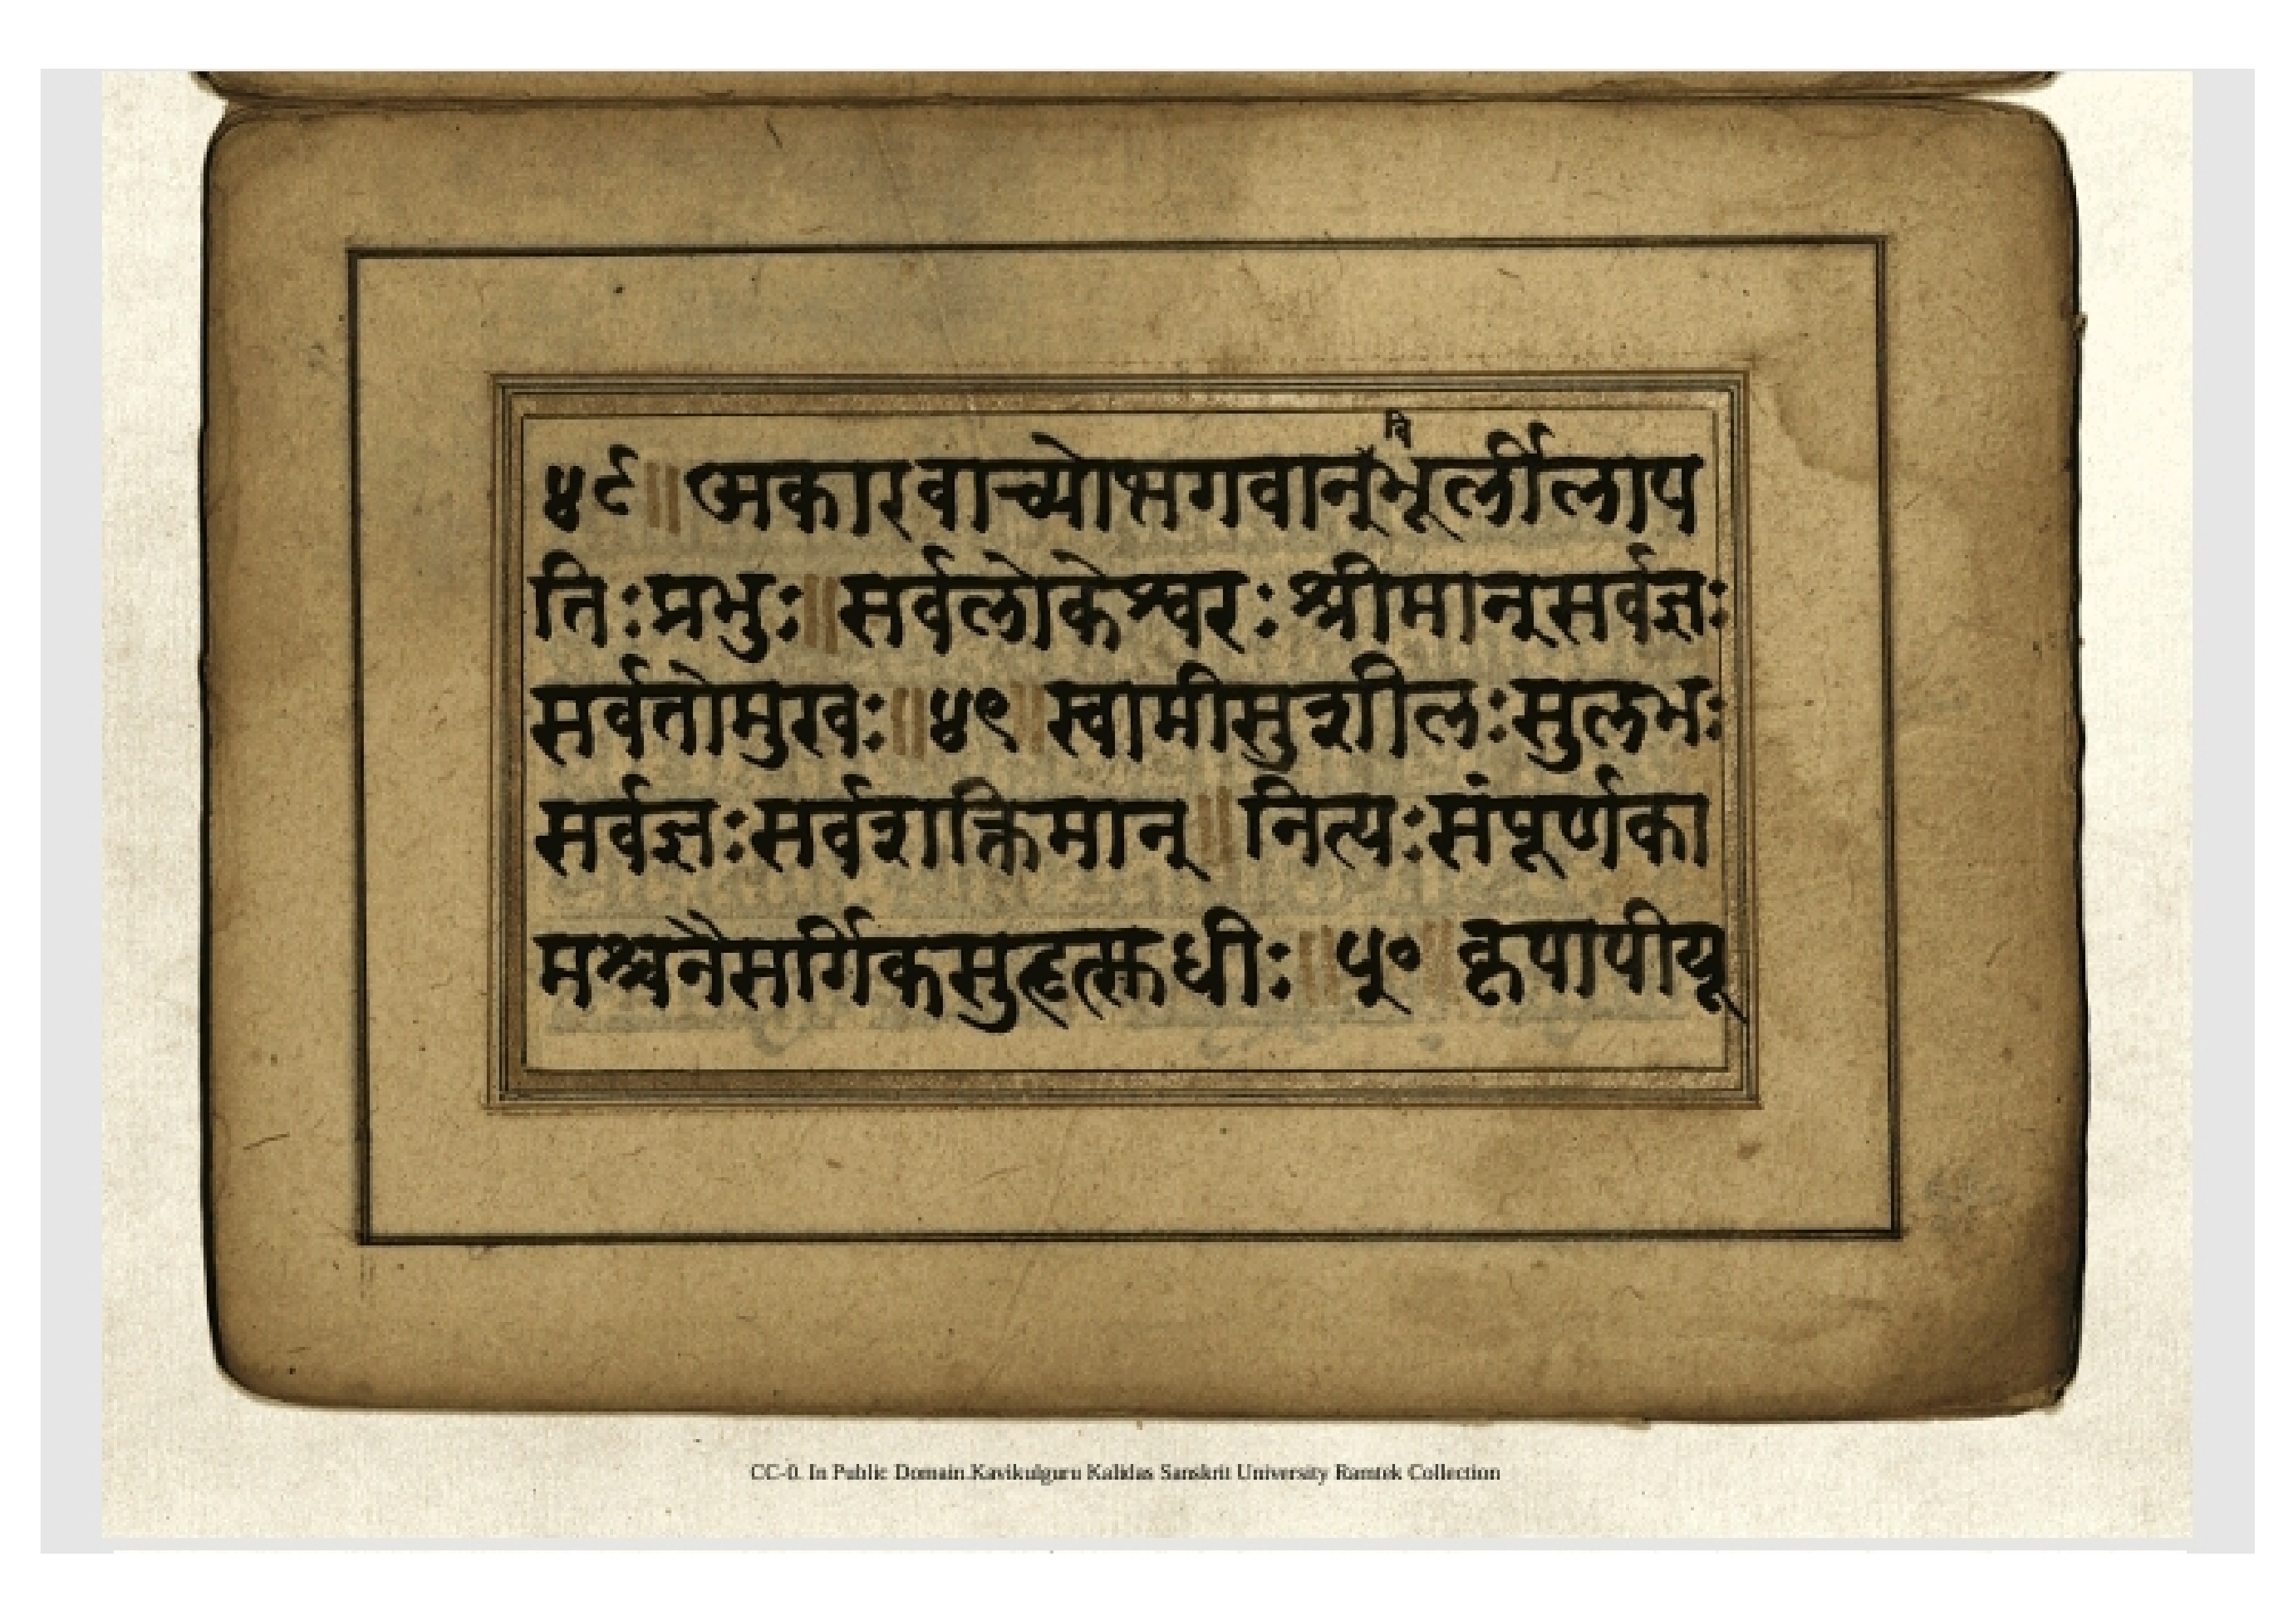 वि
४८॥अकारवाच्योभगवान्भूर्लीलाप
तिःप्रभुः॥सर्वलोकेश्वरःश्रीमान्सर्वज्ञः
सर्वतोमुखः॥४९॥स्वामीसुशीलःसुलभः
सर्वज्ञःसर्वशक्तिमान्॥नित्यःसंपूर्णका
मश्चनैसर्गिकसुहृत्सुधीः॥५०॥कृपापीयू
CC-0. In Public Domain.Kavikulguru Kalidas Sanskrit University Ramtek Collection